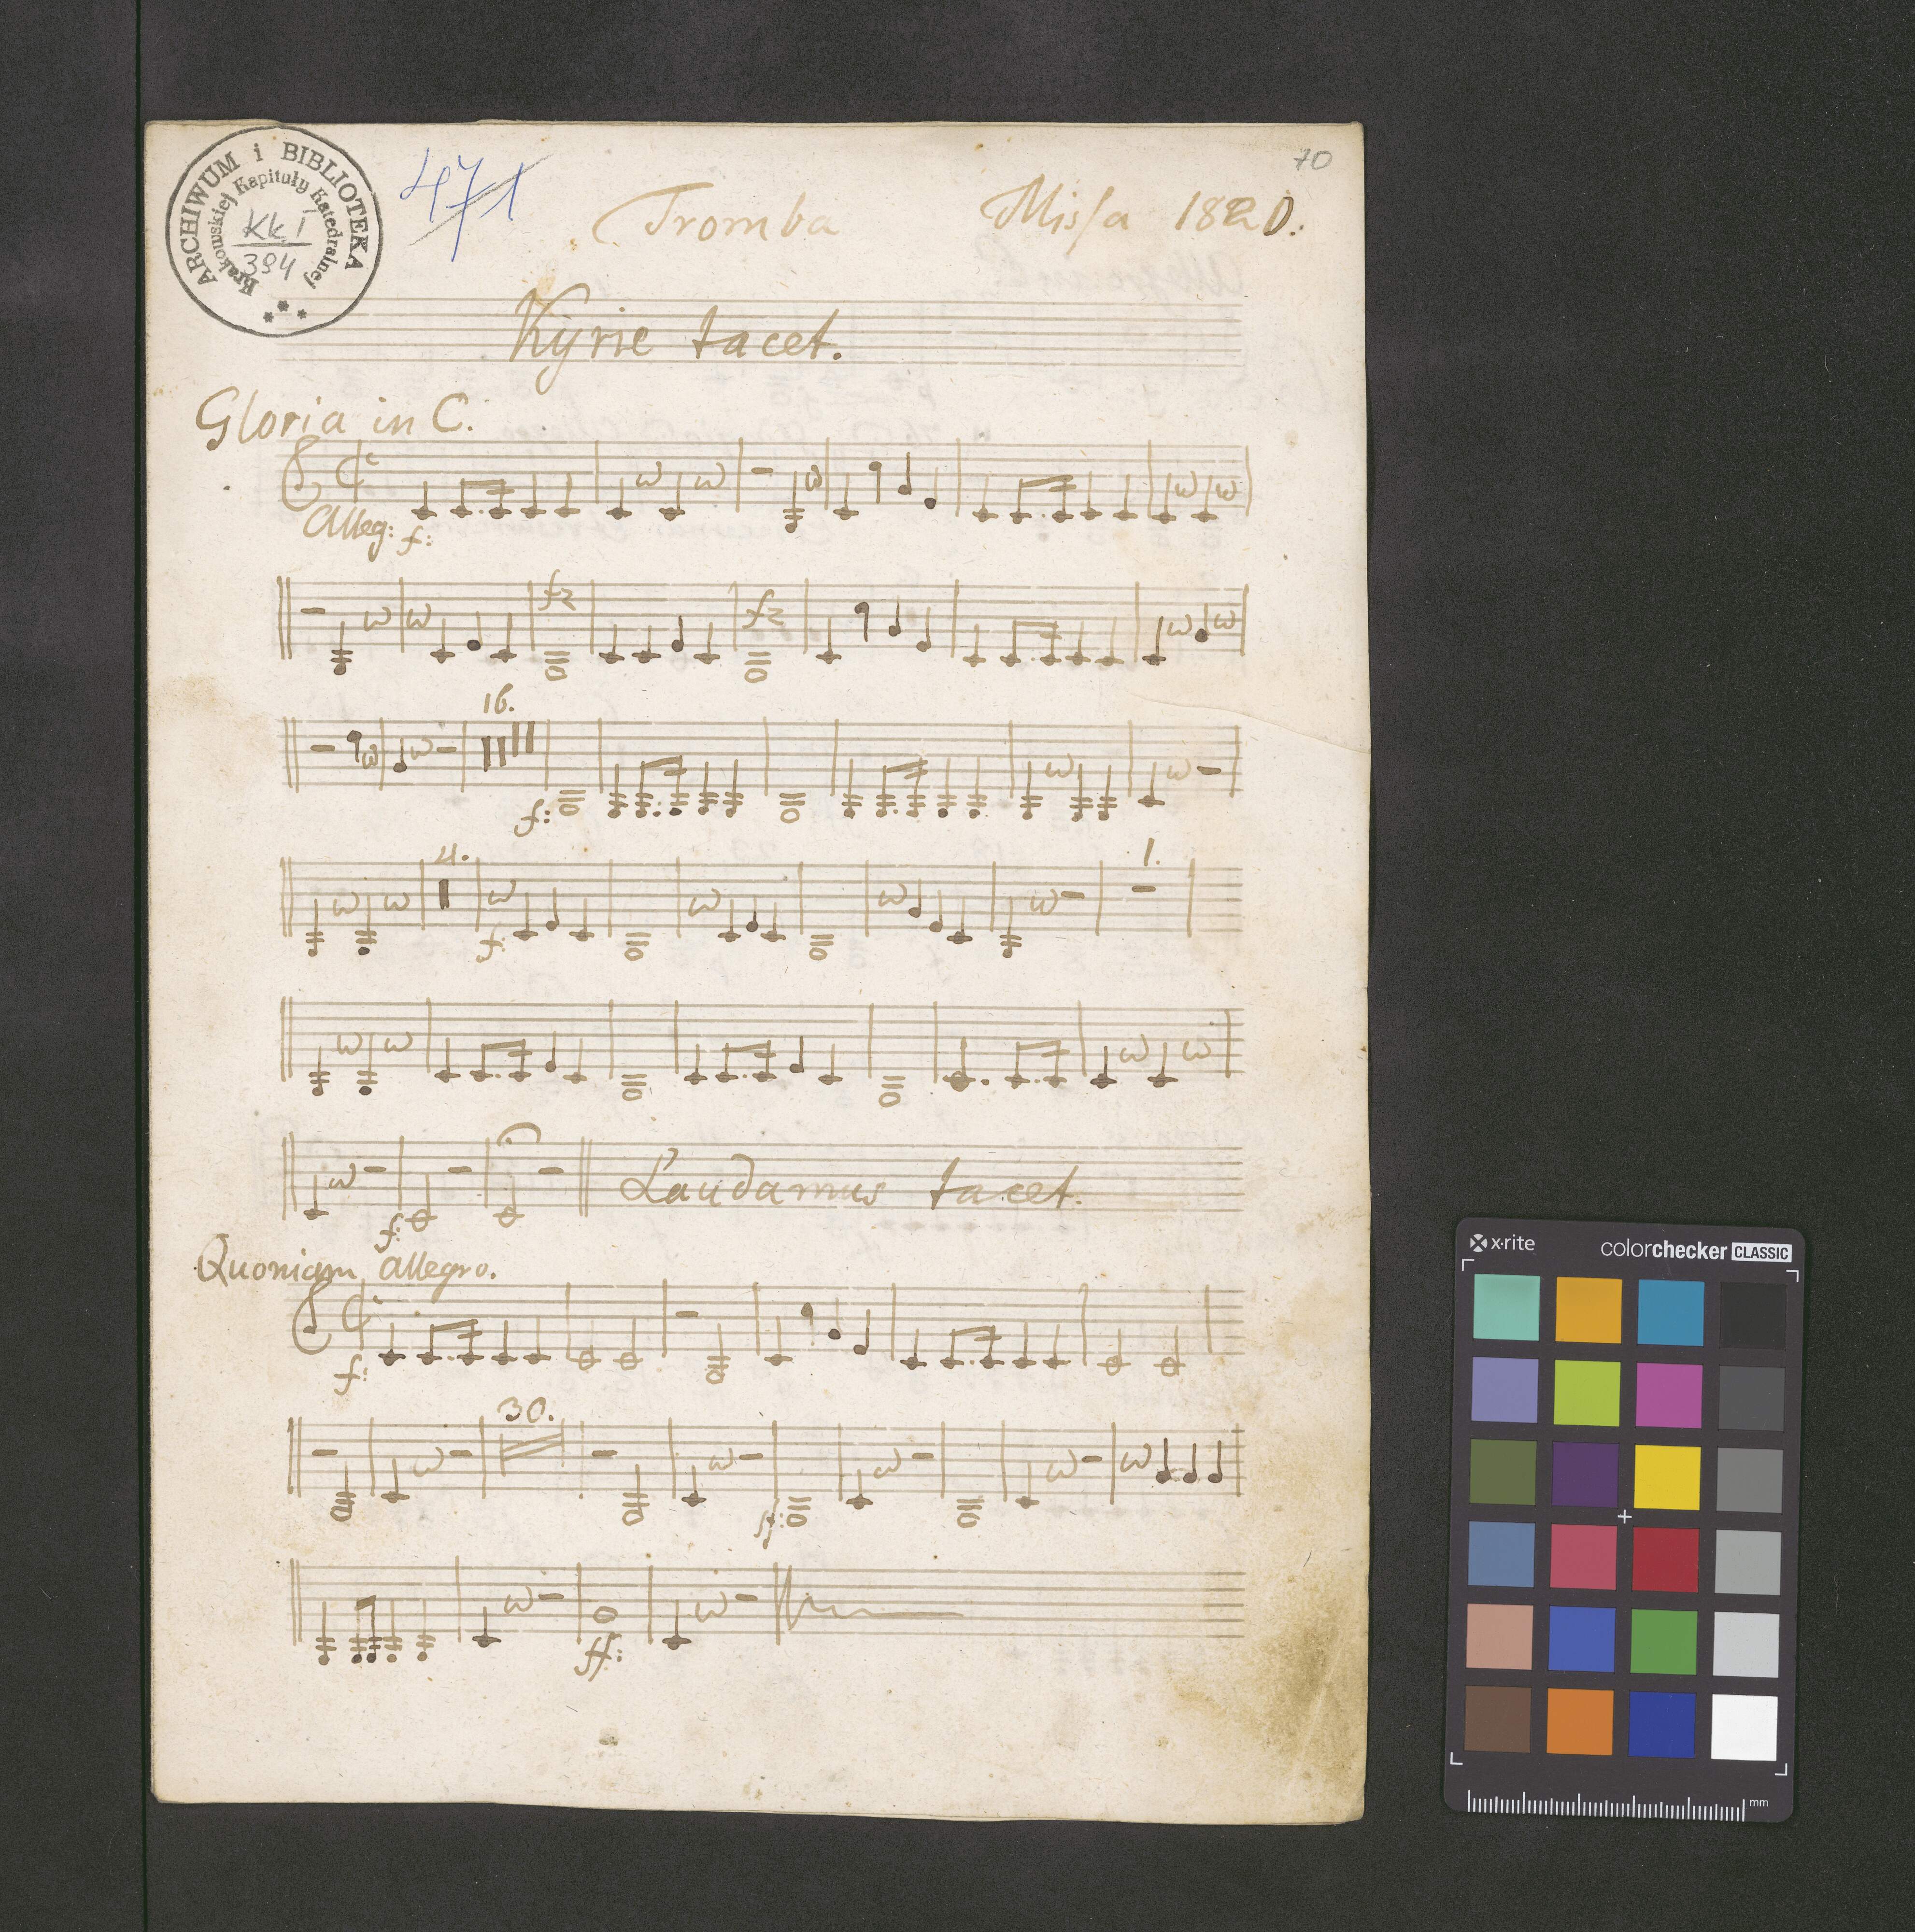 ARCHIWUM i BIBLIOTEKA
Krakowskiej Kapituły Katedralnej
KK I
394
471
70
Tromba Missa 1820.
Kyrie tacet.
Gloria in C.
Alleg: f:
fz fz
16.
f:
4.
1.
f:
f:
Laudamus tacet.
Quoniam allegro.
f:
30.
ff:
ff:
x·rite
colorchecker CLASSIC
mm